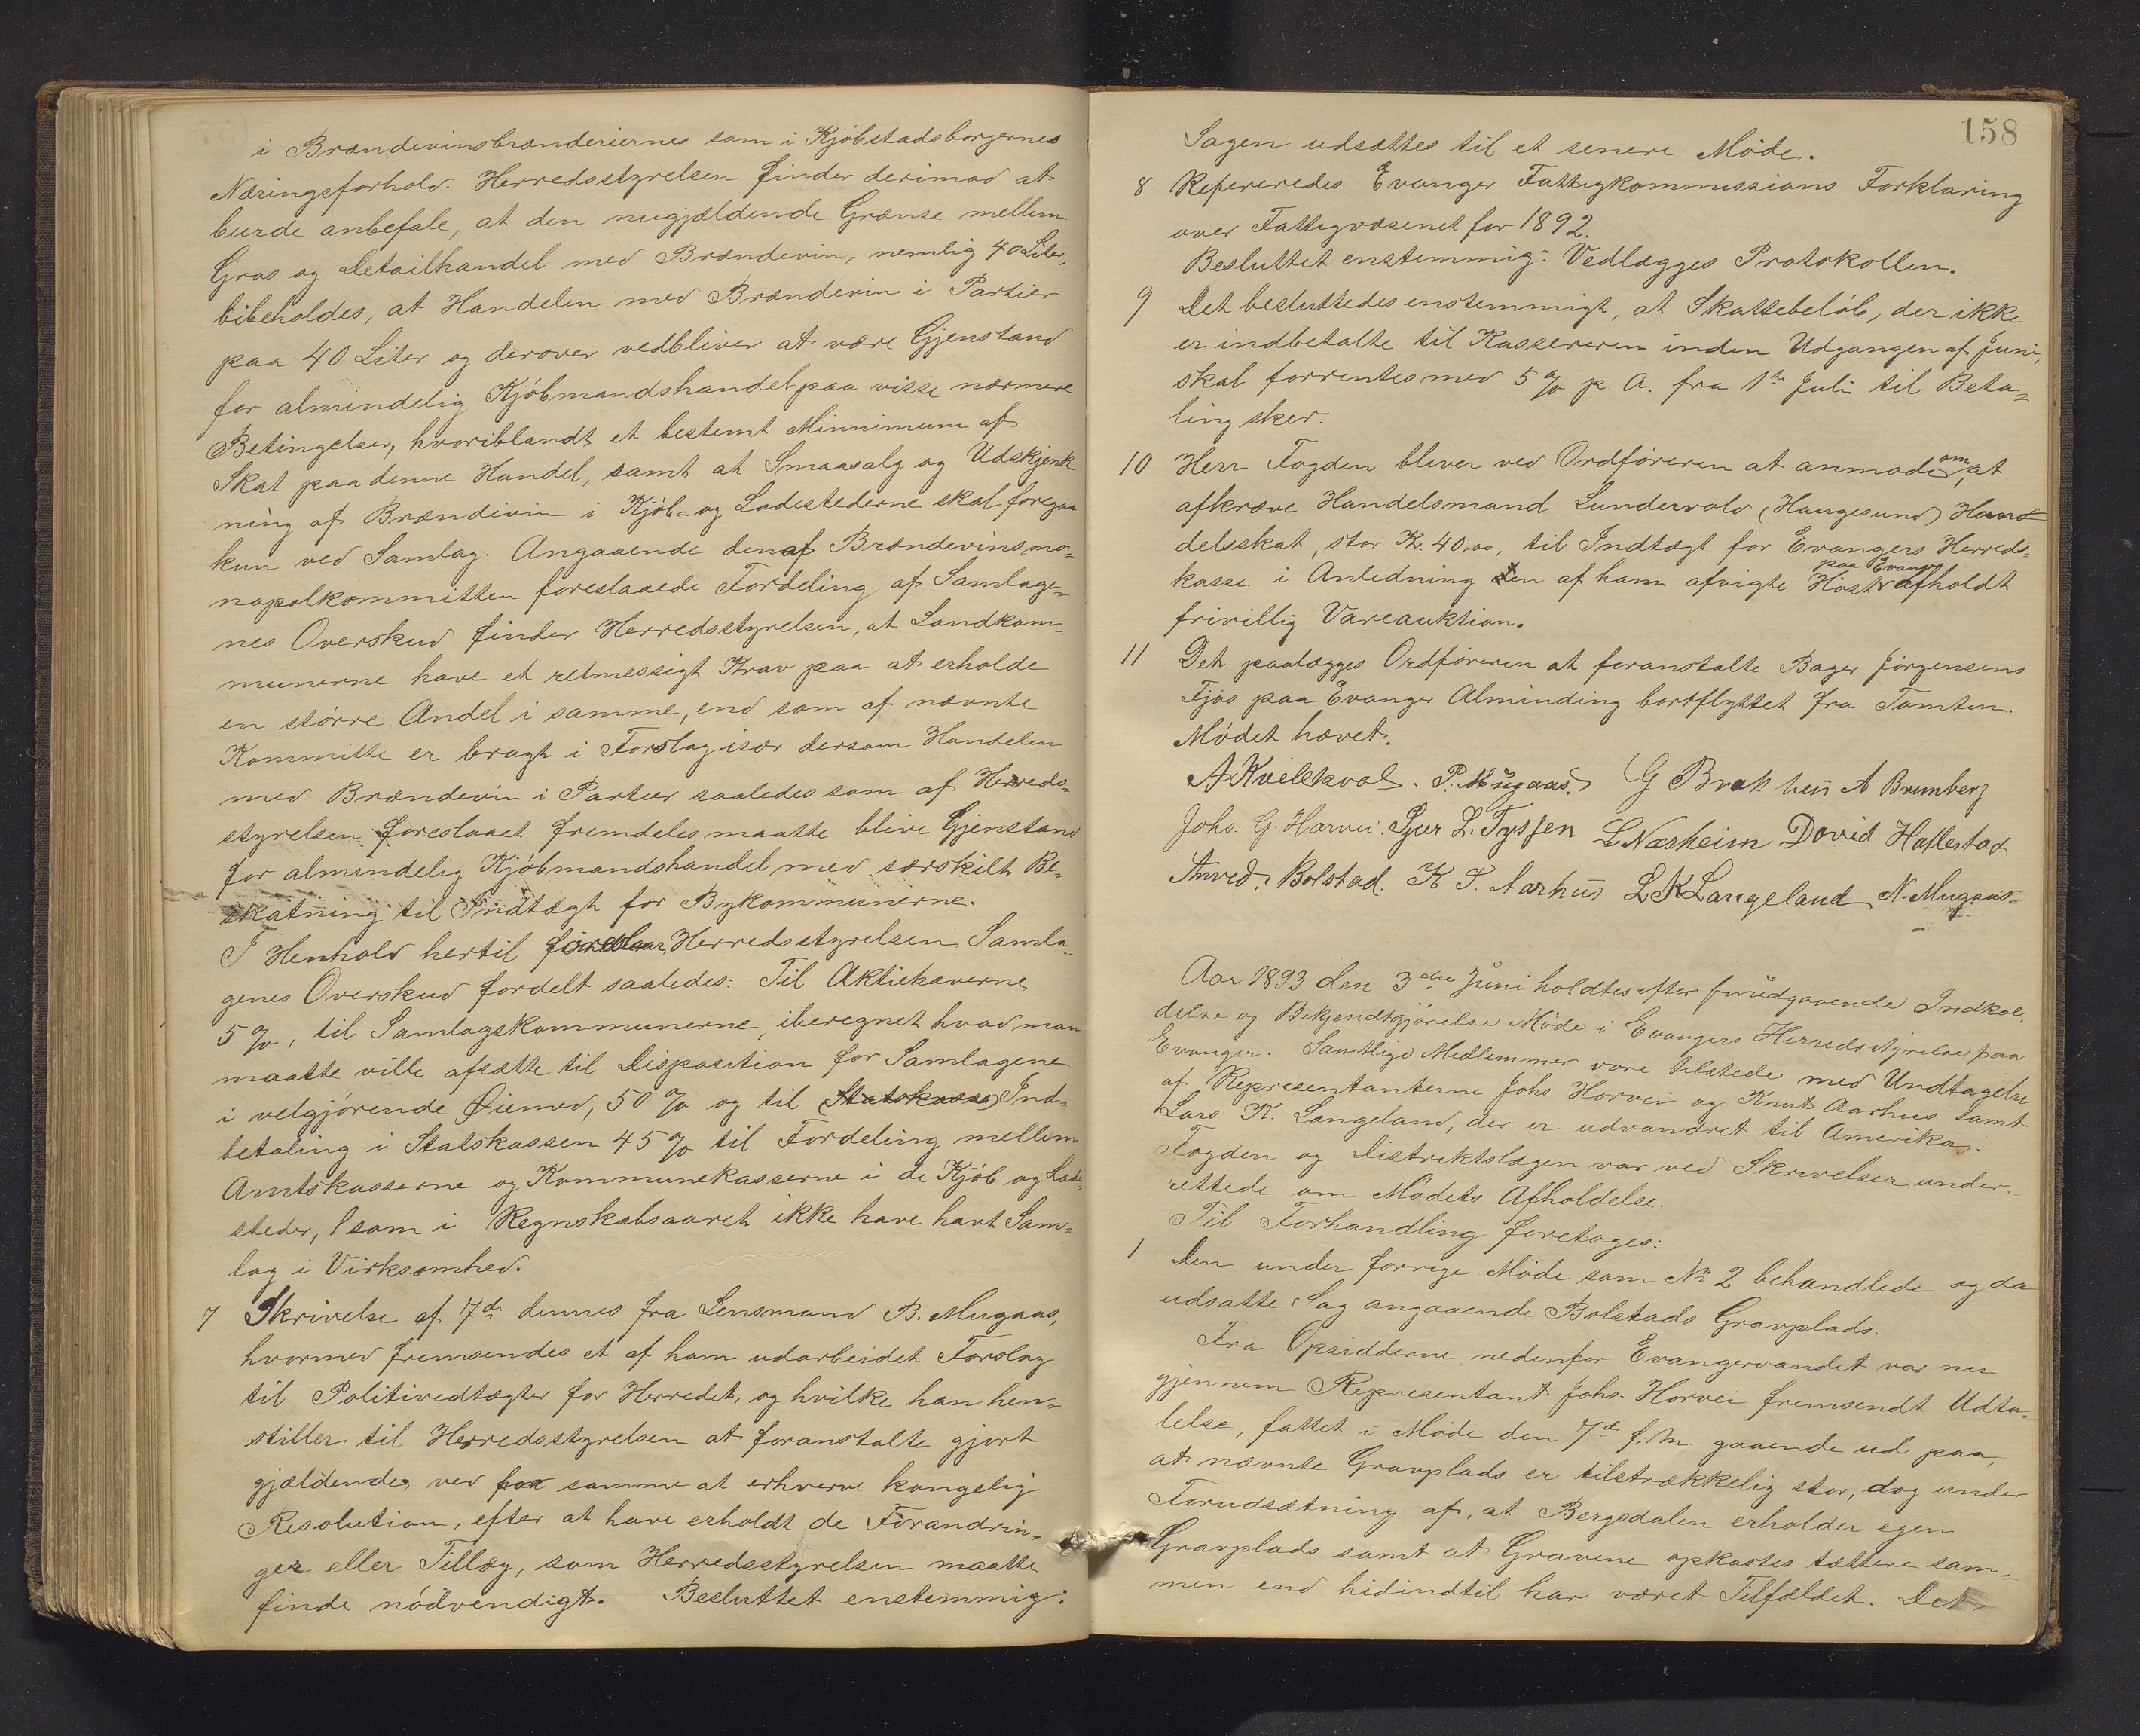 i Brændevinsbrænderiernes som i Kjøbstadsborgernes
Næringsforhold. Herredsstyrelsen finder derimod at
burde anbefale, at den nugjældende Grænse mellem
Gros og Detailhandel med Brændevin, nemlig 40 Liter,
bibeholdes, at Handelen med Brændevin i Partier
paa 40 Liter og derover vedbliver at være Gjenstand
for almindelig Kjøbmandshandel paa visse nærmere
Betingelser, hvoriblandt et bestemt Minnimum af
Skat paa denne Handel, samt at Smaasalg og Udskjenk
ning af Brændevin i Kjøb- og Ladestederne skal foregaa
kun ved Samlag. Angaaende den af Brændevinsmo-
nopolkommitteen foreslaaede Fordeling af Samlage-
nes Overskud finder Herredsstyrelsen, at Landkom-
munerne have et retmessigt Krav paa at erholde
en større Andel i samme, end som af nævnte
Kommitte er bragt i Forslag især dersom Handelen
med Brændevin i Partier saaledes som af Herreds-
styrelsen foreslaaet fremdeles maatte blive Gjenstand
for almindelig Kjøbmandshandel med særskilt Be-
skatning til Indtægt for Bykommunerne.
I Henhold hertil foreslaar Herredsstyrelsen Samla-
genes Overskud fordelt saaledes: Til Aktiehaverne
5 %, til Samlagskommunerne, iberegnet hvad man
maatte ville afsætte til Disposition for Samlagene
i velgjørende Øiemed, 50 % og til Statskasse Ind-
betaling i Statskassen 45 % til Fordeling mellem
Amtskasserne og Kommunekasserne i de Kjøb og Lade-
steder, som i Regnskabsaaret ikke have havt Sam-
lag i Virksomhed.
7 Skrivelse af 7de dennes fra Lensmand B. Mugaas,
hvormed fremsendes et af ham udarbeidet Forslag
til Politivedtægter for Herredet, og hvilke han hen-
stiller til Herredsstyrelsen at foranstalte gjort
gjældende ved for samme at erhverve kongelig
Resolution, efter at have erholdt de Forandrin-
ger eller Tillæg, som Herredsstyrelsen maatte
finde nødvendigt. Besluttet enstemmig:
158
Sagen udsættes til et senere Møde.
8 Refereredes Evanger Fattigkommissions Forklaring
over Fattigvæsenet for 1892.
Besluttet enstemmig: Vedlægges Protokollen.
9 Det besluttedes enstemmigt, at Skattebeløb, der ikke
er indbetalte til Kassereren inden Udgangen af Juni,
skal forrentes med 5 % p A. fra 1te Juli til Beta-
ling sker.
10 Herr Fogden bliver ved Ordføreren at anmode om, at
afkræve Handelsmand Lundervold (Haugesund) Han
delsskat, stor Kr. 40,00, til Indtægt for Evangers Herreds-
kasse i Anledning den af ham afvigte Høst paa Evanger afholdt
frivillig Vareauktion.
11 Det paalægges Ordføreren at foranstalte Bager Jørgensens
Fjøs paa Evanger Alminding bortflyttet fra Tomten.
Mødet hævet.
A Kvilekval. P. Mugaas. G Brak A Brunberg
Johs. G. Horvei. Sjur L. Tyssen L Næsheim David Hallestad
Bolstad. K T. Aarhus L K Langeland N. Mugaas
Aar 1893 den 3die Juni holdtes efter forudgaaende Indkal-
delse og Bekjendtgjørelse Møde i Evangers Herredsstyrelse paa
Evanger. Samtlige Medlemmer vare tilstede med Undtagelse
af Representanterne Johs. Horvei og Knut Aarhus samt
Lars K. Langeland, der er udvandret til Amerika.
Fogden og Distriktslægen var ved Skrivelser under-
rettede om Mødets Afholdelse.
Til Forhandling foretages:
1 Den under forrige Møde som No 2 behandlede og da
udsatte Sag angaaende Bolstads Gravplads.
Fra Opsidderne nedenfor Evangervandet var nu
gjennem Representant Johs. Horvei fremsendt Udta-
lelse, fattet i Møde den 7de f. M. gaaende ud paa,
at nævnte Gravplads er tilstrækkelig stor, dog under
Forudsætning af, at Bergsdalen erholder egen
Gravplads samt at Gravene opkastes tættere sam-
men end hidindtil har været Tilfældet. Det